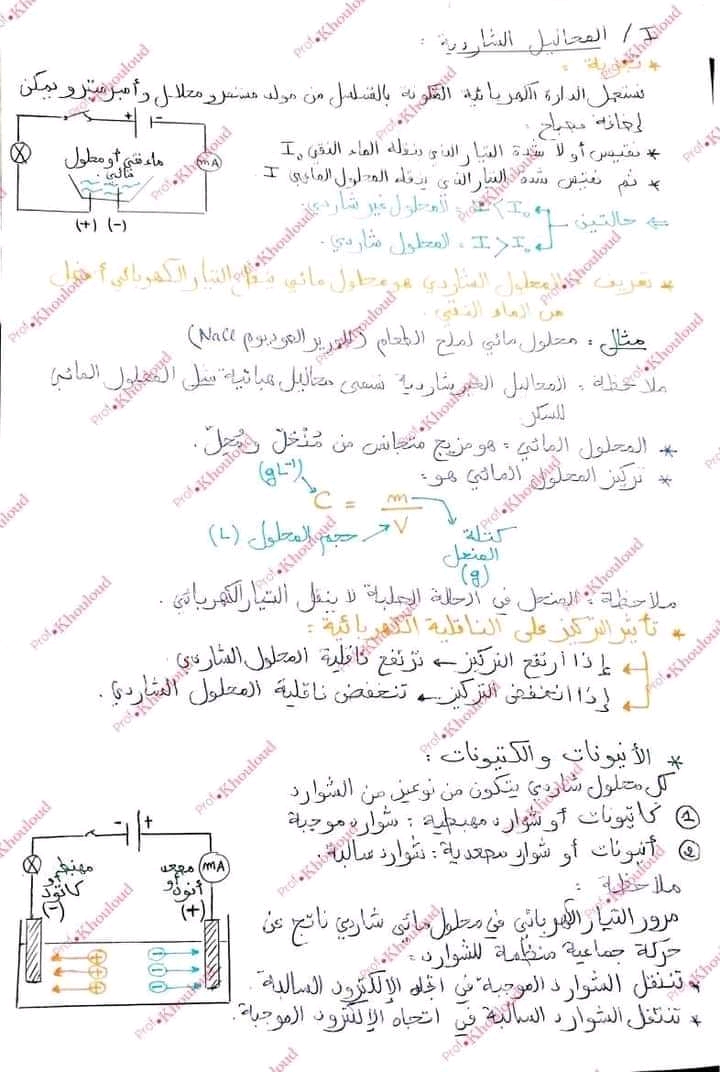 I / المحاليل الشاردية :
* تجربة :
نستعمل الدارة الكهربائية المكونة بالتسلسل من مولد مستمر و محلل و أمبير متر و يمكن
إضافة مصباح :
* نقيس أولا شدة التيار الذي ينقله الماء النقي I₀
* ثم نقيس شدة التيار الذي ينقله المحلول المائي I
⇐ حالتين
I < I₀ : المحلول غير شاردي.
I > I₀ : المحلول شاردي.
ماء نقي أو محلول
مائي
mA
(+) (-)
* تعريف : المحلول الشاردي هو محلول مائي ينقل التيار الكهربائي أفضل
من الماء النقي.
مثال : محلول مائي لملح الطعام (كلورير الصوديوم NaCl)
ملاحظة : المحاليل الغير شاردية تسمى محاليل هبائية مثل المحلول المائي
للسكر.
* المحلول المائي : هو مزيج متجانس من مُنْحَلّ و مُحِلّ.
* تركيز المحلول المائي هو :
(gL⁻¹)
C = m / V
كتلة
المنحل
(g)
حجم المحلول (L)
ملاحظة : المنحل في الحالة الصلبة لا ينقل التيار الكهربائي.
* تأثير التركيز على الناقلية الكهربائية :
إذا ارتفع التركيز ← ترتفع ناقلية المحلول الشاردي.
إذا انخفض التركيز ← تنخفض ناقلية المحلول الشاردي.
* الأنيونات و الكتيونات :
كل محلول شاردي يتكون من نوعين من الشوارد
1 كاتيونات أو شوارد مهبطية : شوارد موجبة
2 أنيونات أو شوارد مصعدية : شوارد سالبة.
ملاحظة :
مرور التيار الكهربائي في محلول مائي شاردي ناتج عن
حركة جماعية منظمة للشوارد :
* تنتقل الشوارد الموجبة في اتجاه الإلكترود السالبة.
* تنتقل الشوارد السالبة في اتجاه الإلكترود الموجبة.
- +
mA
مهبط
أو
كاتود
(-)
مصعد
أو
أنود
(+)
Prof•Khouloud